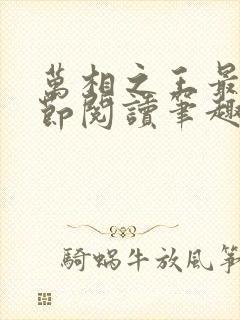 萬相之王最
節閱讀筆趣
騎蝸牛放風箏